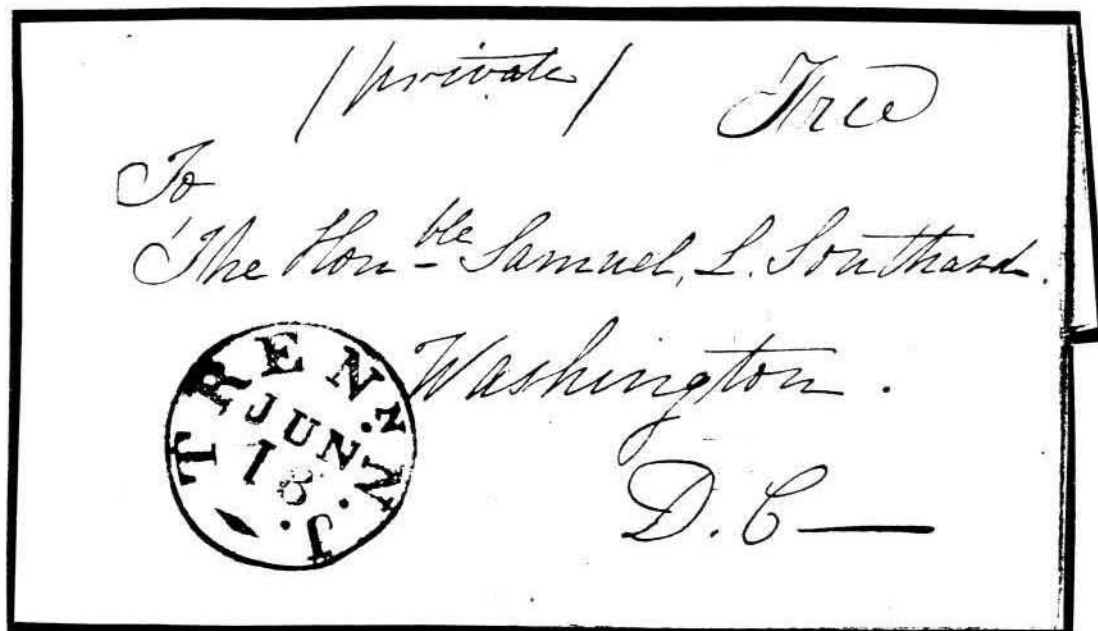 /private/ Free
To
The Hon^ble Samuel, L. Southard.
Washington.
D. C —
TRENN. N.J.
JUN
18